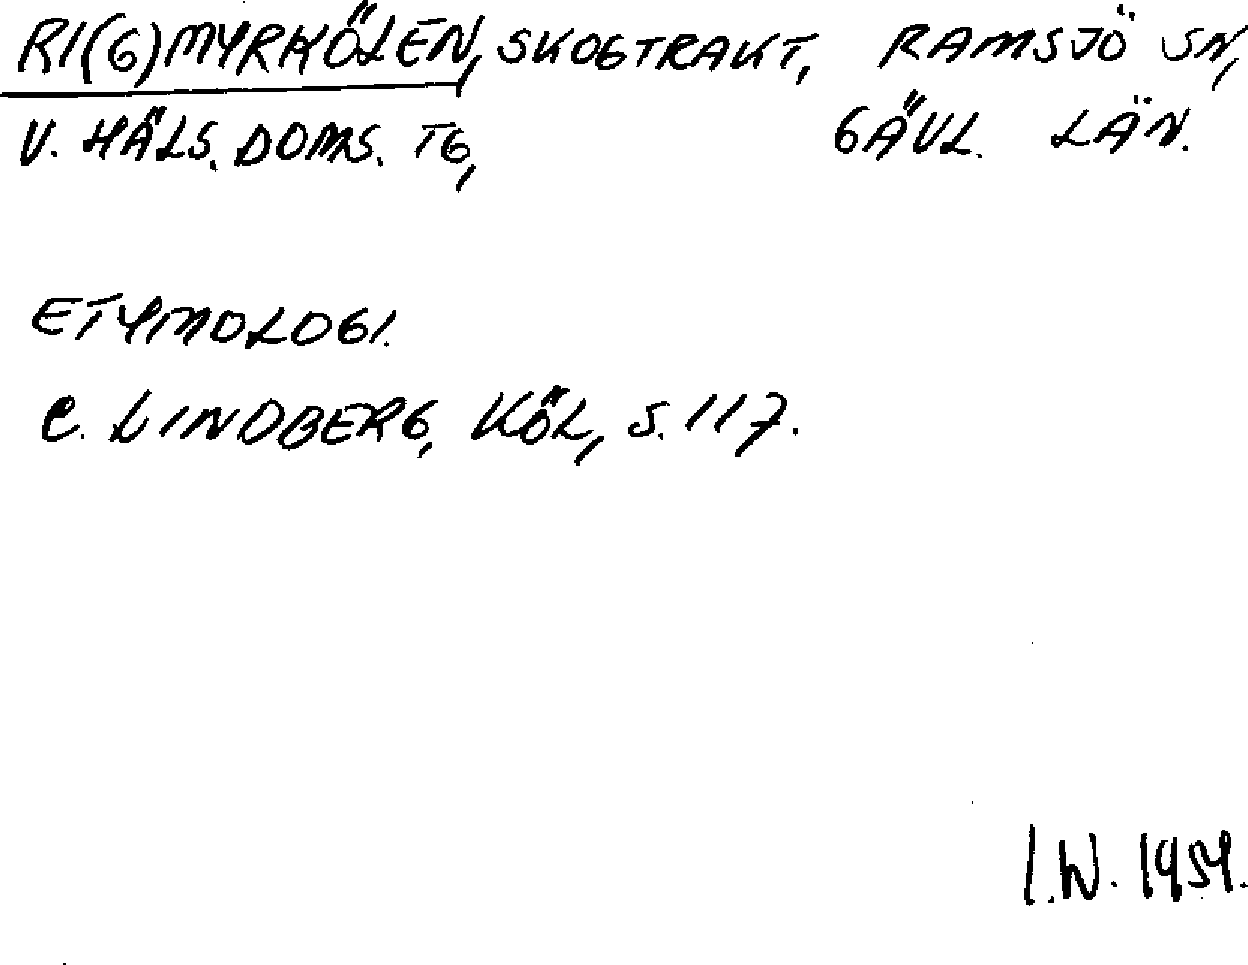 RI(G)MYRKÖLEN, SKOGTRAKT, RAMSJÖ SN,
V. HÄLS. DOMS. TG, GÄVL. LÄN.
ETYMOLOGI.
C. LINDBERG, KÖL, S. 117.
I.W. 1954.